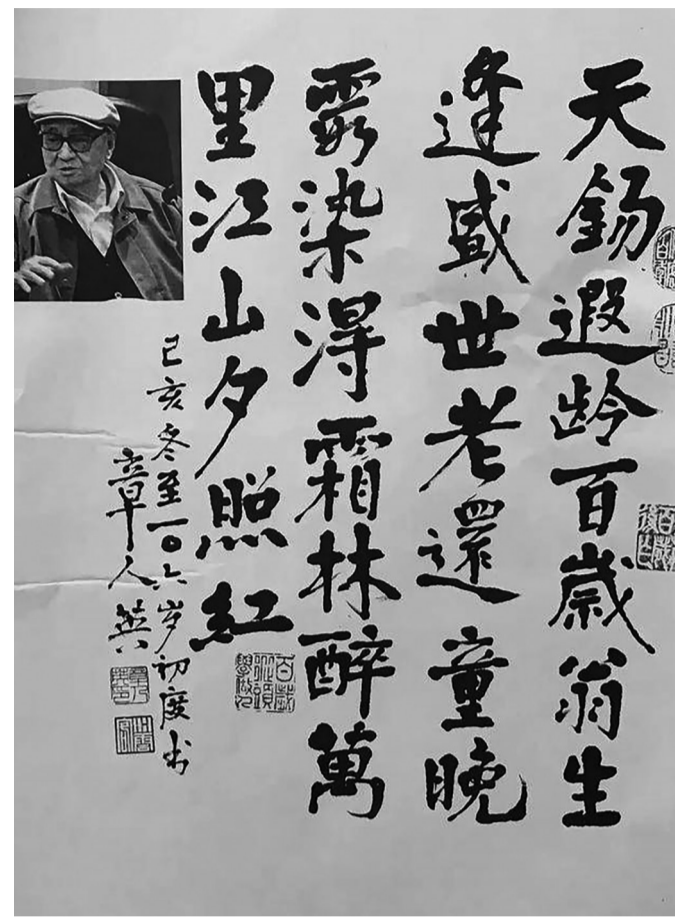 天錫遐齡百歲翁生
逢盛世老還童晚
霞染得霜林醉萬
里江山夕照紅
己亥冬至一〇六岁初度书
章人英